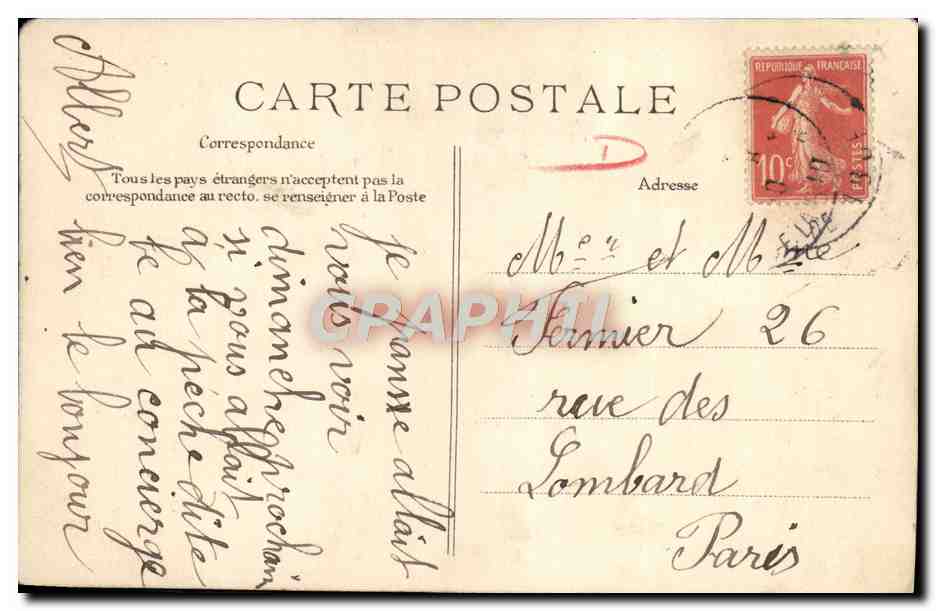 CARTE POSTALE
Correspondance
Tous les pays étrangers n'acceptent pas la
correspondance au recto. se renseigner à la Poste
Adresse
RÉPUBLIQUE FRANÇAISE
10c
POSTES
D
Je panse allait
vous voir
dimanche prochain
si vous allait
à la pèche dite
le au concierge
bien le bonjour
Albert
et Mme
Fermier 26
rue des
Lombard
Paris
CRAPHTI